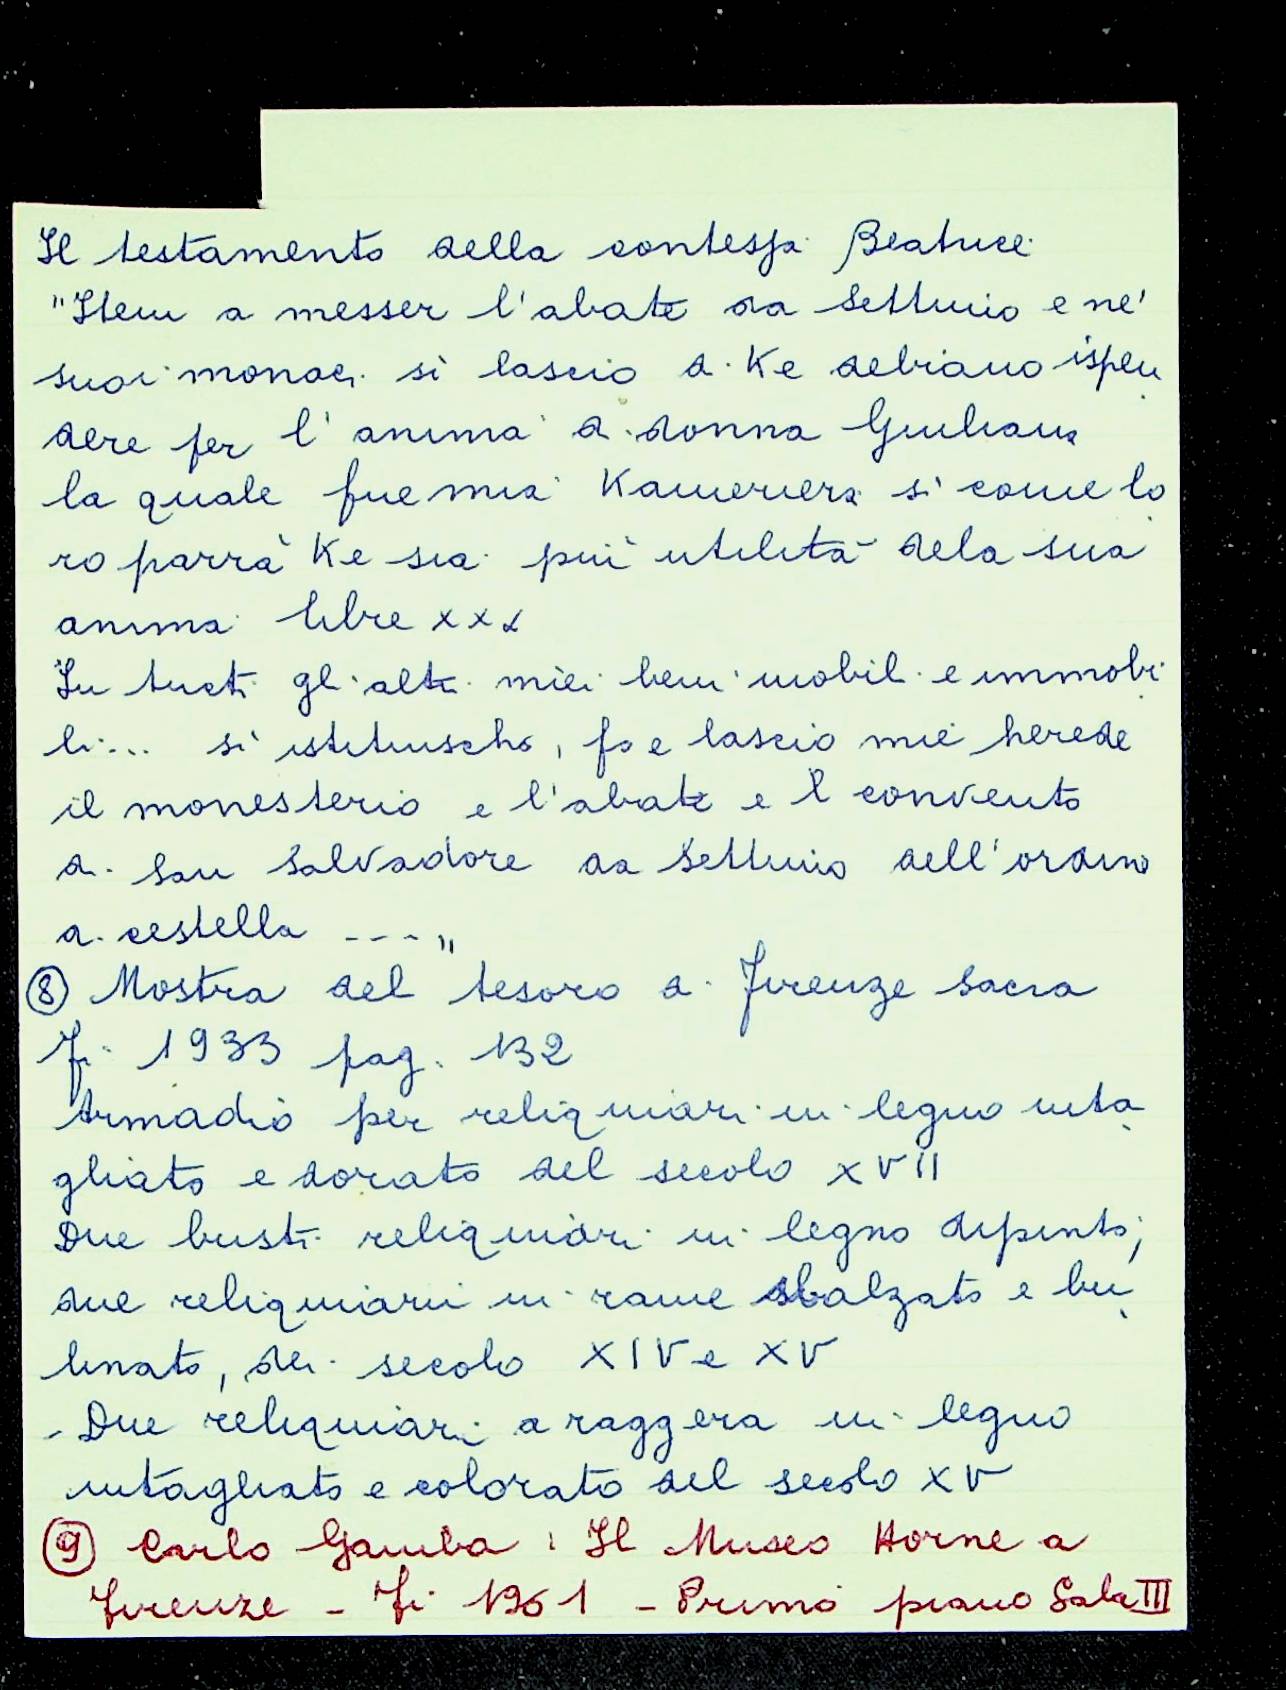 Il testamento della contessa Beatrice
"Item a messer l'abate da Settimo e ne'
suoi monaci si lascio di Ke debiano ispen
dere per l'anima di donna Giuliana
la quale fue mia Kameriera sì come lo
ro parrà Ke sia più utilità dela sua
anima libre xxx
In tucti gli altri miei beni mobili e immobi
li... si istituischo, fo e lascio mie herede
il monesterio e l'abate e 'l convento
di San Salvadore da Settimo dell'ordine
di cestella ----"
⑧ Mostra del tesoro di Firenze Sacra
Fi 1933 pag. 132
Armadio per reliquiari in legno inta
gliato e dorato del secolo XVII
Due busti reliquiari in legno dipinto;
due reliquiarii in rame sbalzato e bu
linato, dei secolo XIV e XV
- Due reliquiari a raggera in legno
intagliato e colorato del secolo XV
⑨ Carlo Gamba : Il Museo Horne a
Firenze - Fi 1961 - Primo piano Sala III